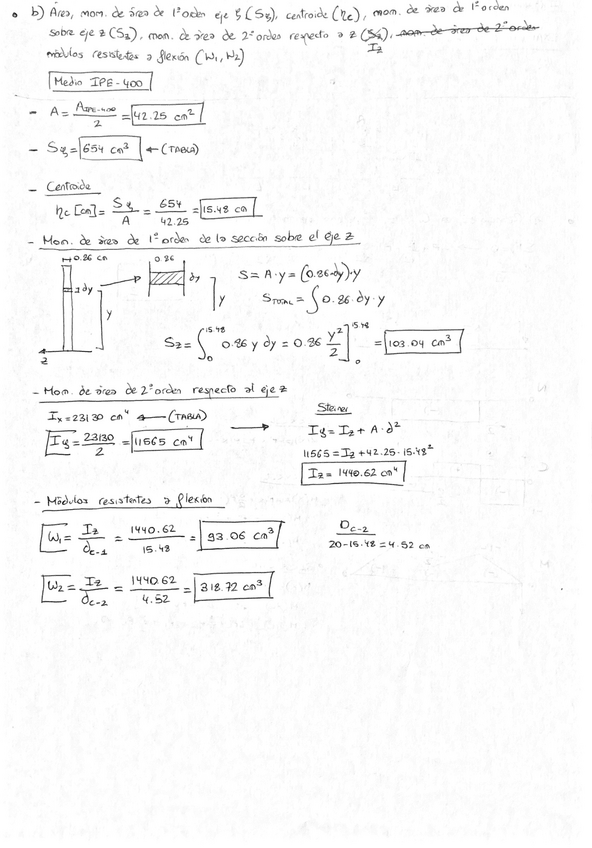 b) Área, mom. de área de 1º orden eje ξ (Sξ), centroide (ηc), mom. de área de 1º orden
sobre eje z (Sz), mom. de área de 2º orden respecto a z (Sz), mom. de área de 2º orden
Iz
módulos resistentes a flexión (W1, W2)
Medio IPE-400
- A = A IPE-400 / 2 = 42.25 cm²
- Sξ = 654 cm³ ← (TABLA)
- Centroide
ηc [cm] = Sξ / A = 654 / 42.25 = 15.48 cm
- Mom. de área de 1º orden de la sección sobre el eje z
0.86 cm
0.86
dy
dy
y
y
z
S = A·y = (0.86·dy)·y
S TOTAL = ∫ 0.86·dy·y
Sz = ∫₀^15.48 0.86 y dy = 0.86 y²/2 ]₀^15.48 = 103.04 cm³
- Mom. de área de 2º orden respecto al eje z
Ix = 23130 cm⁴ ← (TABLA)
Iξ = 23130 / 2 = 11565 cm⁴
Steiner
Iξ = Iz + A·d²
11565 = Iz + 42.25·15.48²
Iz = 1440.62 cm⁴
- Módulos resistentes a flexión
W1 = Iz / dc-1 = 1440.62 / 15.48 = 93.06 cm³
Dc-2
20-15.48 = 4.52 cm
W2 = Iz / dc-2 = 1440.62 / 4.52 = 318.72 cm³